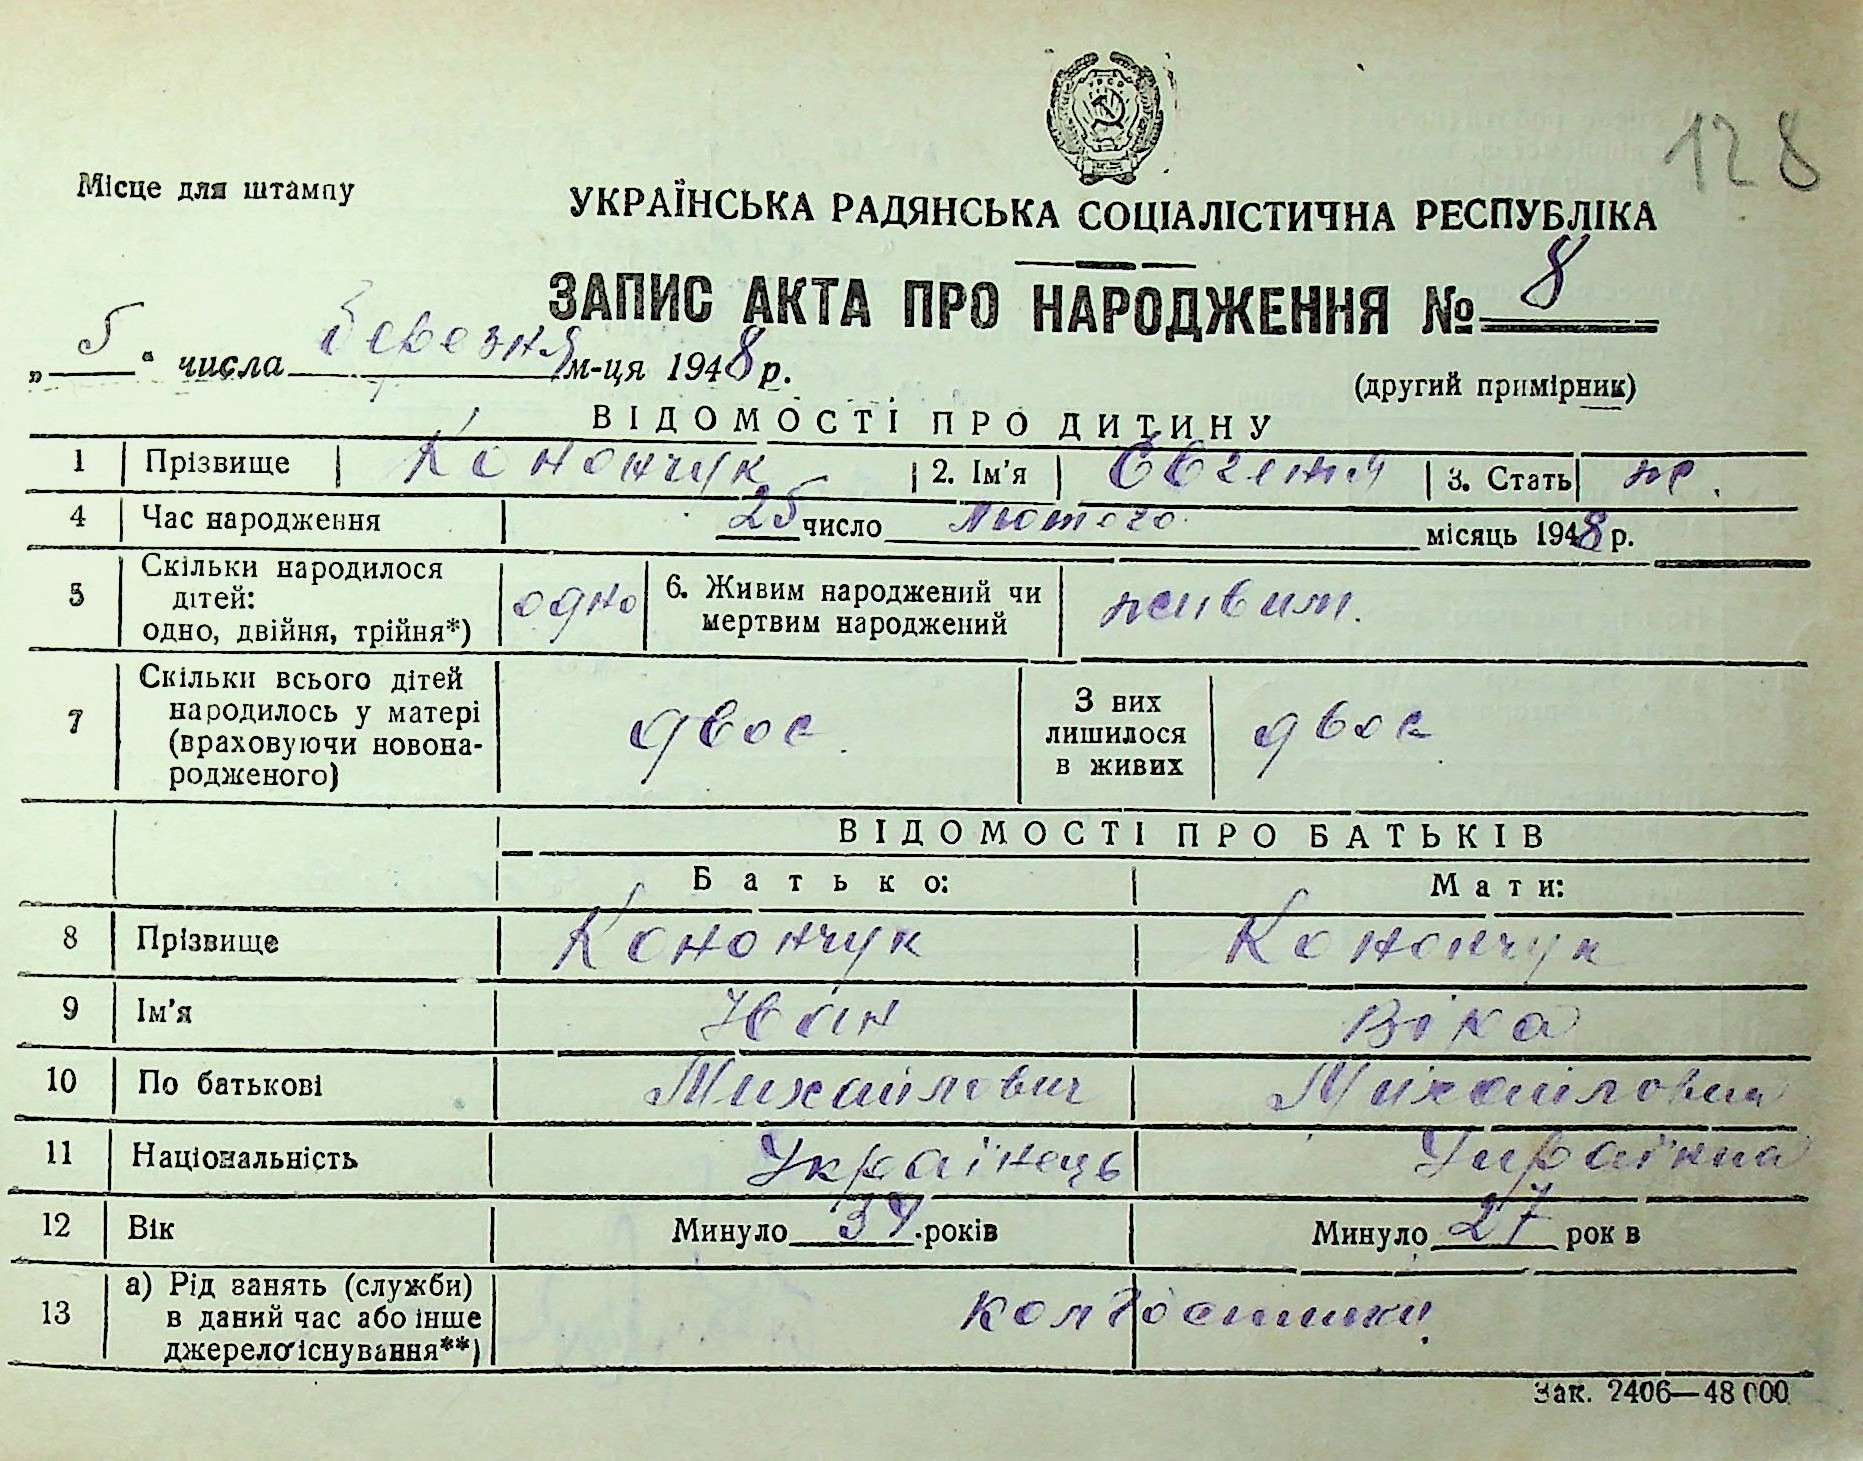 128
Місце для штампу
УКРАЇНСЬКА РАДЯНСЬКА СОЦІАЛІСТИЧНА РЕСПУБЛІКА
ЗАПИС АКТА ПРО НАРОДЖЕННЯ № 8
„ 5 “ числа березня м-ця 1948 р.
(другий примірник)
ВІДОМОСТІ ПРО ДИТИНУ
1 Прізвище Конончук 2. Ім'я Євгенія 3. Стать ж.
4 Час народження 25 число лютого місяць 1948 р.
5 Скільки народилося дітей: одно, двійня, трійня*) одно 6. Живим народжений чи мертвим народжений живим.
7 Скільки всього дітей народилось у матері (враховуючи новонародженого) двоє З них лишилося в живих двоє
ВІДОМОСТІ ПРО БАТЬКІВ
Батько: Мати:
8 Прізвище Конончук Конончук
9 Ім'я Іван Віка
10 По батькові Михайлович
11 Національність Українець Українка
12 Вік Минуло 34 років Минуло 27 рок в
13 а) Рід занять (служби) в даний час або інше джерело існування**) колгоспники
Зак. 2406—48 000